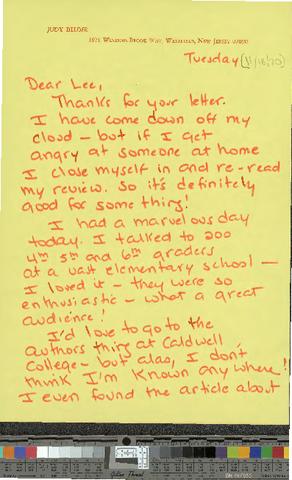 JUDY BLUME
Tuesday (11/16/70)
Dear Lee,
Thanks for your letter.
I have come down off my
cloud – but if I get
angry at someone at home
I close myself in and re-read
my review. So it's definitely
good for something!
I had a marvelous day
today. I talked to 200
4th 5th and 6th graders
at a vast elementary school –
I loved it – they were so
enthusiastic – what a great
audience!
I'd love to go to the
authors thing at Caldwell
College – but alas, I don't
think I'm known any where!
I even found the article about